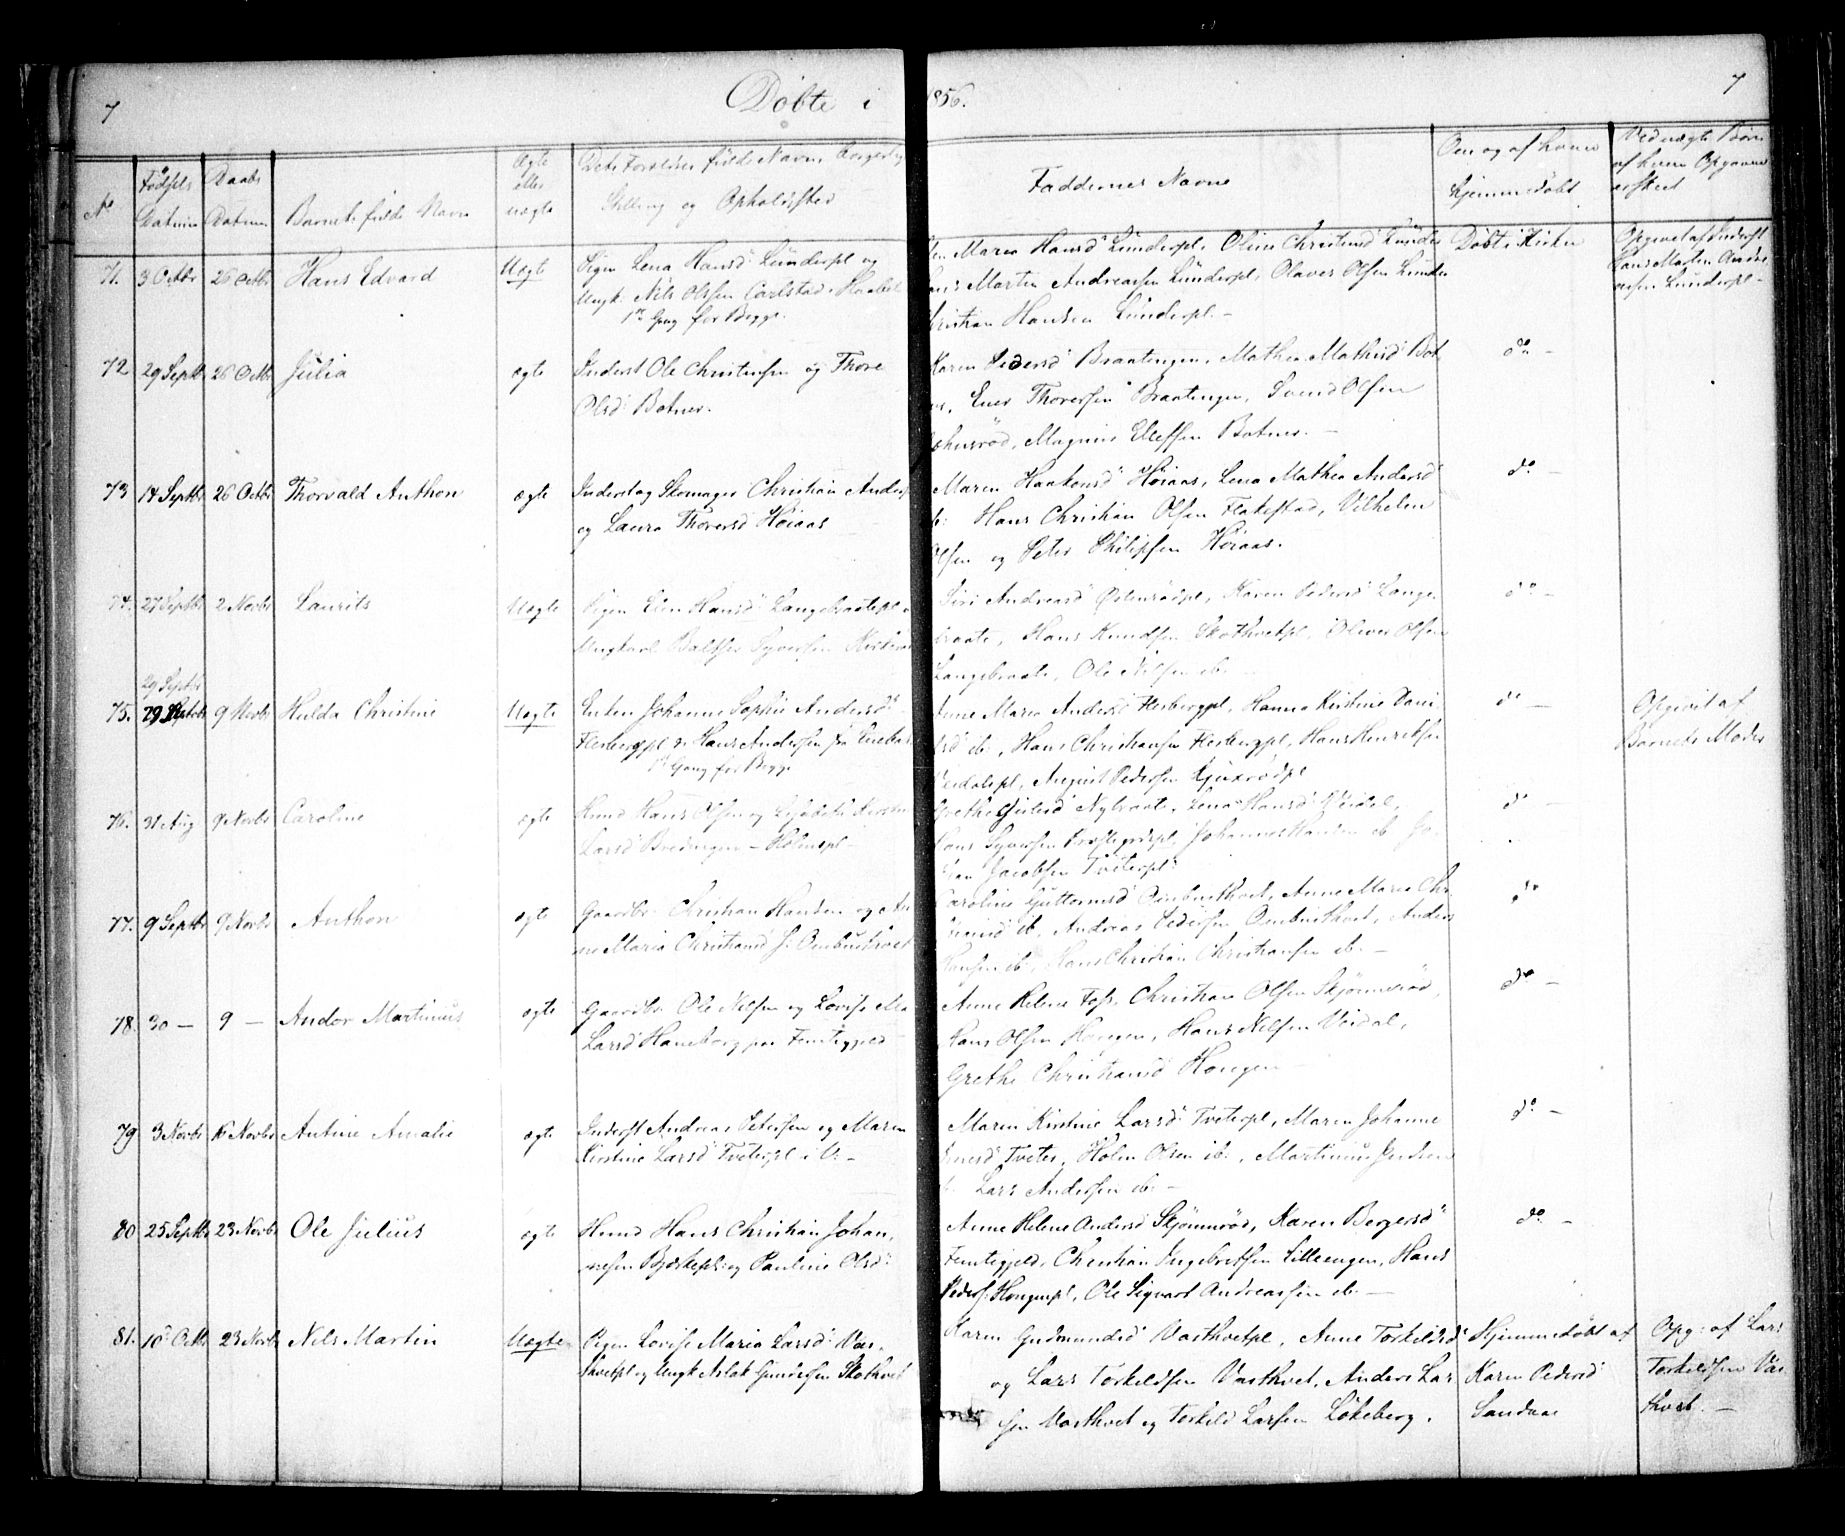 7 Døbte i 1856. 7
No
Fødsels Datum
Daabs Datum
Barnets fulde Navn
Ægte eller uægte
Dets Forældres fulde Navn, Borgerlige
Stilling og Opholdssted
Faddernes Navne
Om og af hvem
hjemmedøbt
Ved uægte Børn
af hvem Opgaven
er skeet
71. 3 Octbr 26 Octbr Hans Edvard Uægte Pigen Lena Hansd Lunderpl og
Ungk. Nils Olsen Carlstad i Haabøl
1ste Gang for Begge.
Maren Hansd Lunderpl, Oline Christensd Lunder
Hans Martin Andreassen Lunderpl, Olaves Olsen Lunder
Christian Hansen Lunderpl. -
Døbt i Kirken
Opgivet af Inderst
Hans Martin Andre
assen Lunderpl -
72 29 Septbr 26 Octbr Julia ægte Inderst Ole Christensen og Thore
Olsd Botner.
Karen Pedersd Braatengen, Mathea Mathisd Bot
ner, Ener Thoresen Braatengen, Svend Olsen
Magnus Eleffsen Botner. -
do -
73 14 Septbr 26 Octbr Thorvald Anthon ægte Inderst og Skomager Christian Anders
og Laura Thoresd Høiaas
Maren Haakensd Høiaas, Lena Mathea Andersd
ib: Hans Christian Olsen Flakestad, Vilhelm
Olsen og Peter Philipsen Høiaas.
do -
74. 27 Septbr 2 Novbr Laurits Uægte Pigen Elen Hansd Langebraatepl
Ungkarl Baltser Syversen
Siri Andreasd Østenrødpl, Karen Pedersd Lange
braate, Hans Knudsen Skothvetpl, Oliver Olsen
Langebraate, Ole Nilsen ib. -
do -
29 Septbr
75. 29 Septbr 9 Novbr Hulda Christine Uægte Enken Johanne Sophie Andersd
Flesbergpl og Hans Andersen fra Enebak
1ste Gang for Begge
Anne Maria Andersd Flesbergpl, Hanna Kirstine Dani
elsd ib., Hans Christiansen Flesbergpl, Hans Henriksen
August Pedersen
do -
Opgivet af
Barnets Moder
76. 31 Aug 9 Novbr Caroline ægte Huusmd Hans Olsen og
Larsd Bredengen - Holmspl -
Grethe Nybraate, Lena Hansd Veidal,
Hans Syversen Præstegrdspl, Johannes Hansen ib Jo
han Jacobsen Tveterpl
do -
77. 9 Septbr 9 Novbr Anthon ægte Gaardbr. Christian Hansen og An
ne Maria Christiansd Ombusthvet
Caroline Guttormsd Ombusthvet, Anne Maria Chr
ib, Andreas Pedersen Ombusthvet, Anders
Hansen ib, Hans Christian Christiansen ib. -
do
78 30 - 9 - Andor Martinius ægte Gaardbr. Ole Nilsen og Lovise Ma
Larsd Haneborg paa Femtegjeld
Anne Helene Foss, Christian Olsen Skjønnerød,
Hans Olsen Haneborg, Hans Nilsen Veidal,
Grethe Christiansd Hougen -
do -
79 3 Novbr 16 Novbr Antine Amalie ægte Inderst Andreas Petersen og Maren
Kirstine Larsd Tveterpl i V. -
Maren Kirstine Larsd Tveterpl, Maren Johanne
Tveter, Holm Olsen ib., Martinius Jensen
ib. Lars Andersen ib. -
do -
80 25 Septbr 23 Novbr Ole Julius ægte Huusmd Hans Christian Johan,
nesen Bjerkepl og Pauline Olsd
Anne Helene Andersd Skjønnerød, Karen Borgersd
Femtegjeld, Christian Ingebretsen Lilleengen, Hans
Peders Hougenpl, Ole Sigvart Andreassen ib. -
do -
81. 10 Octbr 23 Novbr Nils Martin Uægte Pigen Lovise Maria Larsd Vas,
thvetpl og Ungk Aslak Gundersen Skothvet
Karen Gudmundsd Vasthvetpl, Anne Torkildsd
og Lars Torkildsen Vasthvet, Anders Lar
sen Vasthvet og Torkild Larsen Løkeberg.
Hjemmedøbt af
Karen Pedersd
Sandaae
Opg: af Lars
Torkildsen Vas
thvet. -